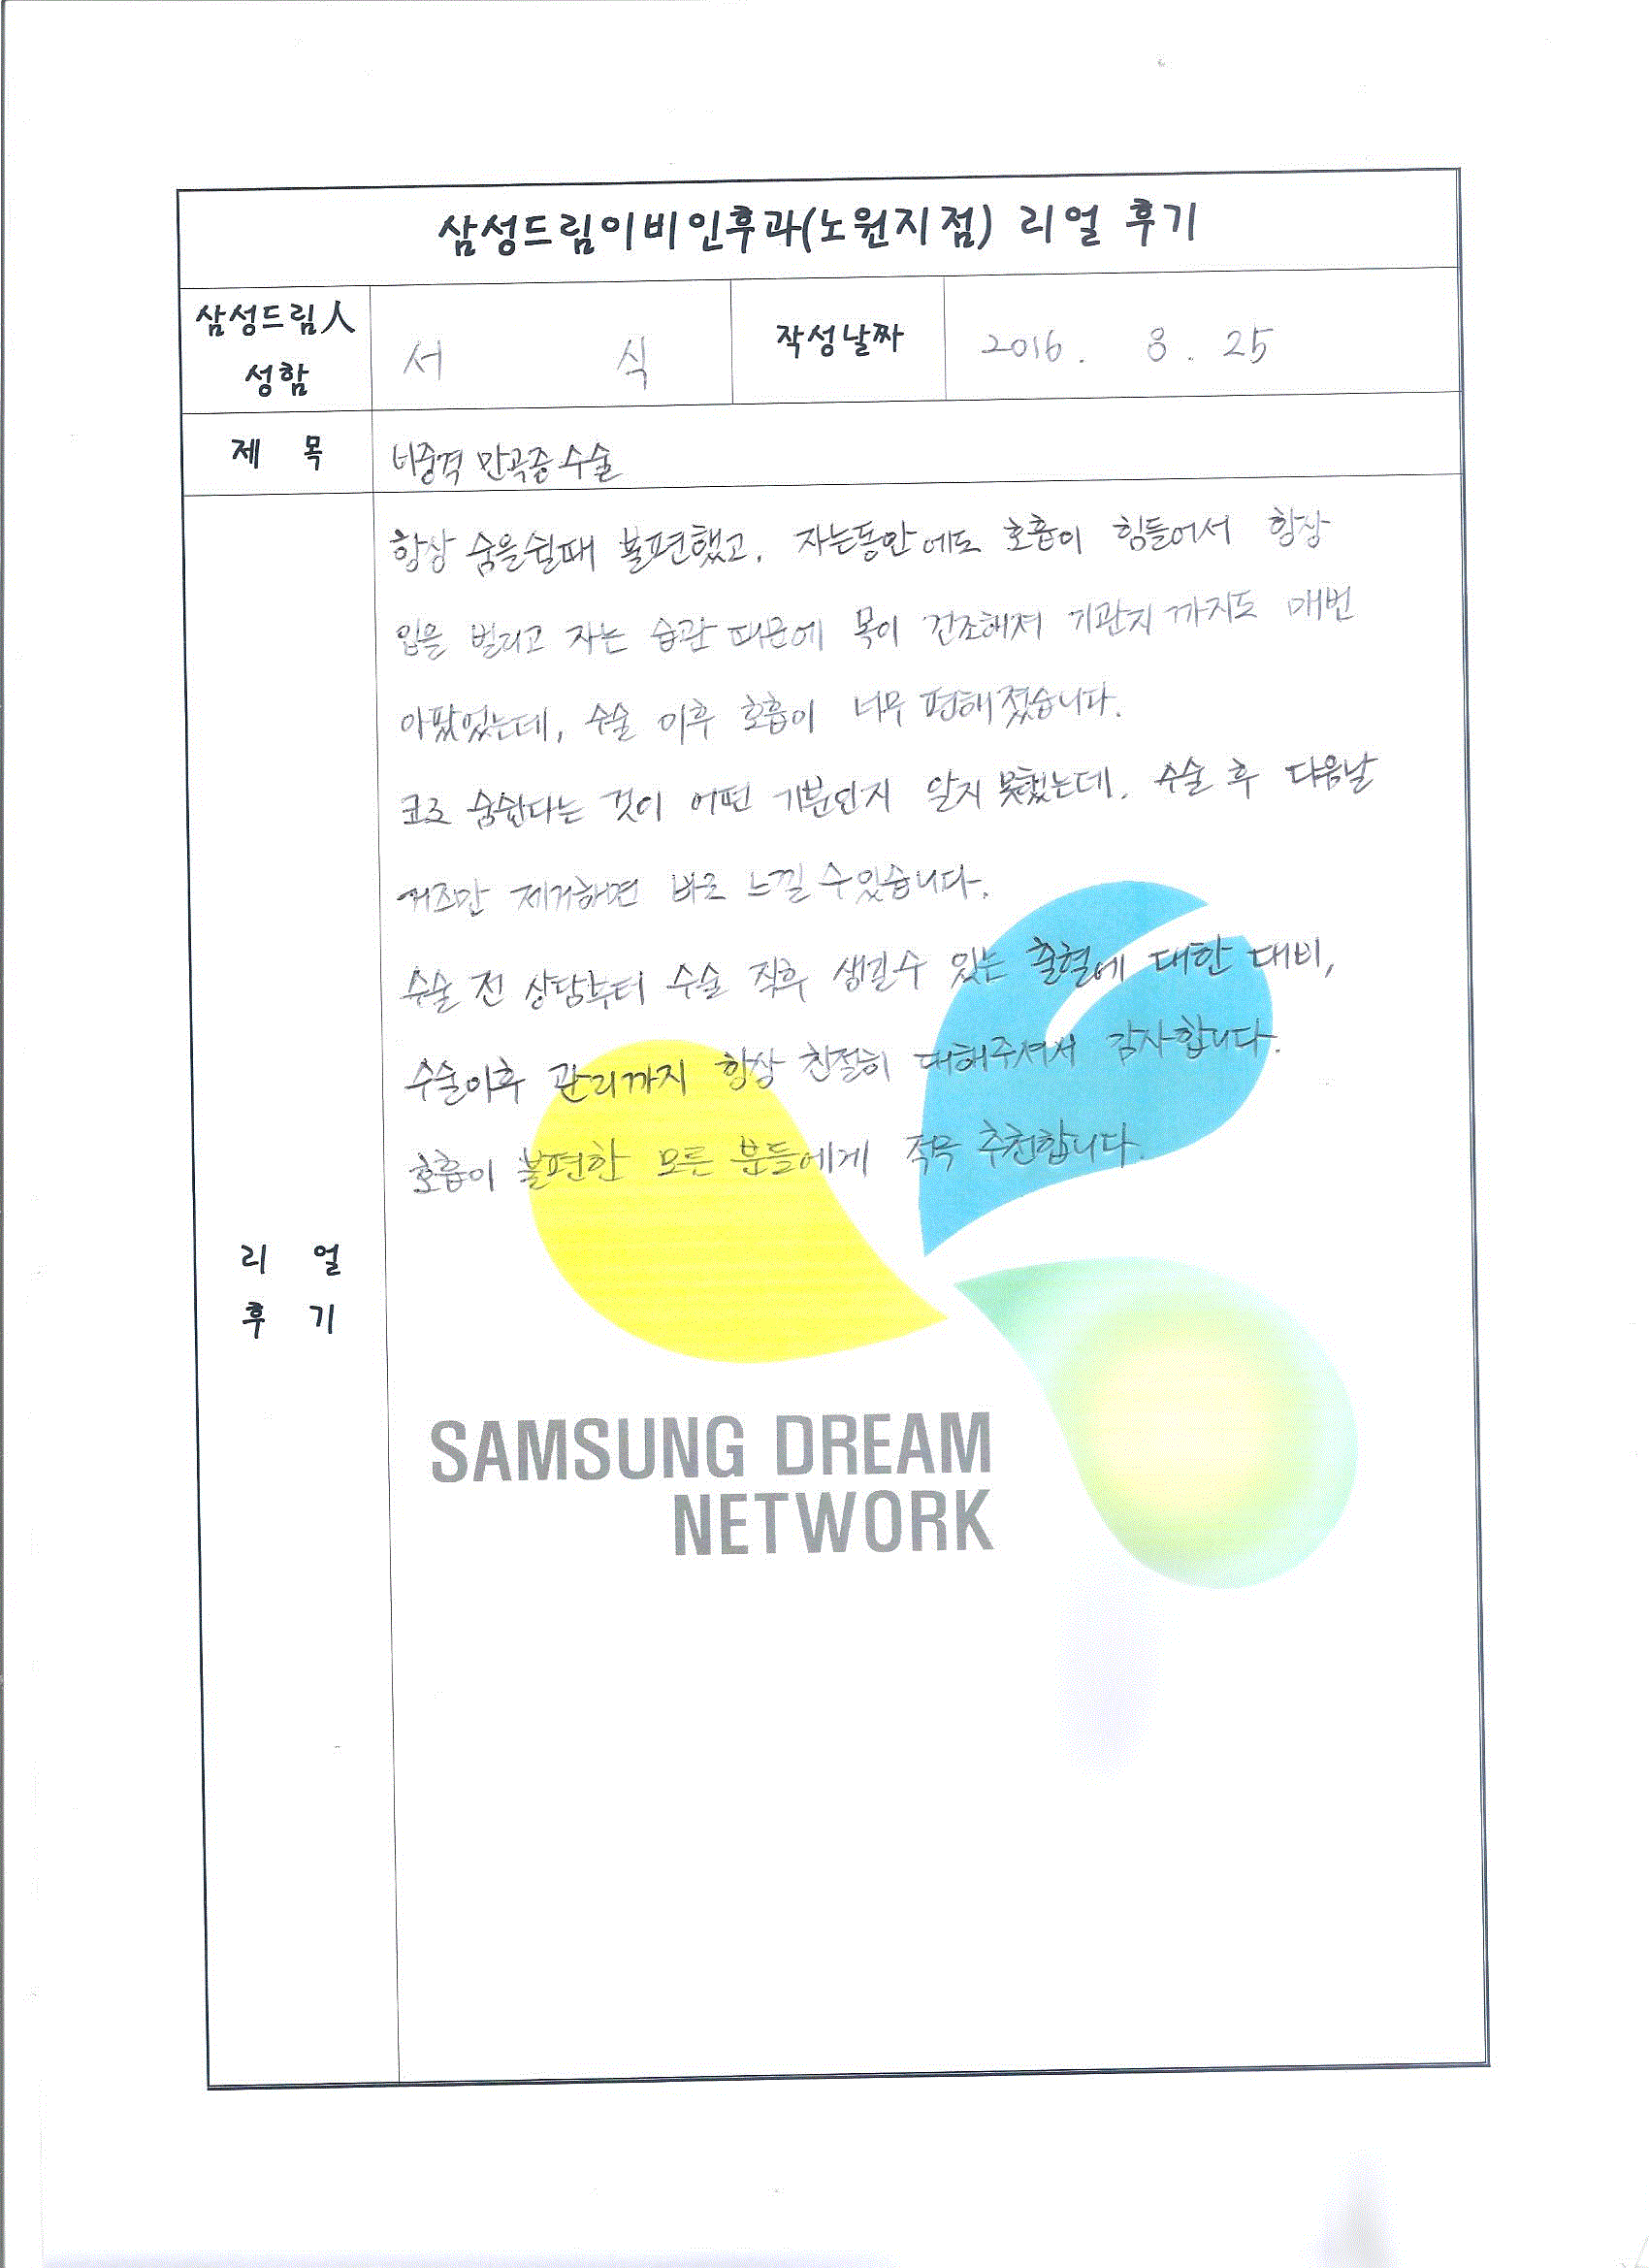 삼성드림이비인후과(노원지점) 리얼 후기
삼성드림人 성함
서 식
작성날짜
2016. 8. 25
제 목
비중격 만곡증수술
항상 숨을쉴때 불편했고, 자는동안에도 호흡이 힘들어서 항상
입을 벌리고 자는 습관 때문에 목이 건조해져 기관지까지도 매번
아팠었는데, 수술 이후 호흡이 너무 편해졌습니다.
코로 숨쉰다는 것이 어떤 기분인지 알지 못했는데, 수술 후 다음날
거즈만 제거하면 바로 느낄 수있습니다.
수술 전 상담부터 수술 직후 생길수 있는 출혈에 대한 대비,
수술이후 관리까지 항상 친절히 대해주셔서 감사합니다.
호흡이 불편한 모든 분들에게 적극 추천합니다.
리 얼
후 기
SAMSUNG DREAM
NETWORK